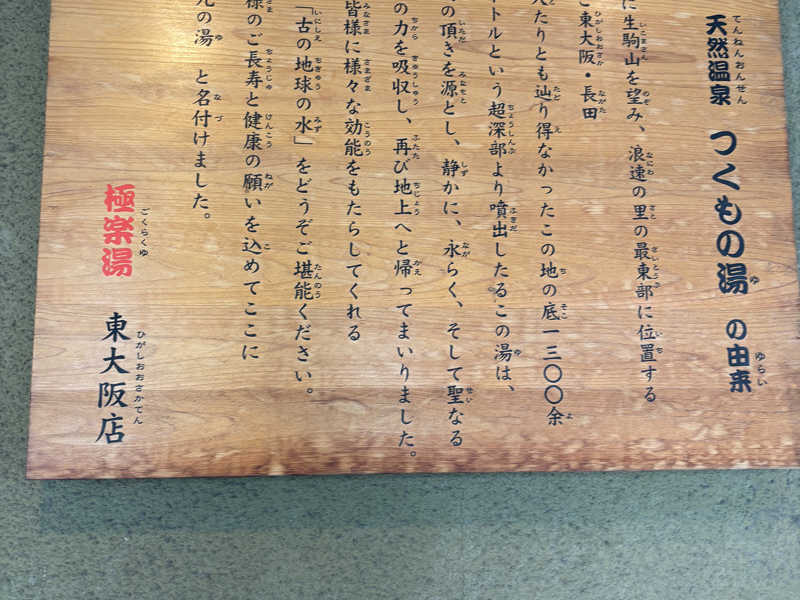 天然温泉 つくもの湯 の由来
に生駒山を望み、浪速の里の最東部に位置する
東大阪・長田
たりとも辿り得なかったこの地の底一三〇〇余
トルという超深部より噴出したるこの湯は、
の頂きを源とし、静かに、永らく、そして聖なる
の力を吸収し、再び地上へと帰ってまいりました。
皆様に様々な効能をもたらしてくれる
「古の地球の水」をどうぞご堪能ください。
様のご長寿と健康の願いを込めてここに
の湯 と名付けました。
極楽湯 東大阪店